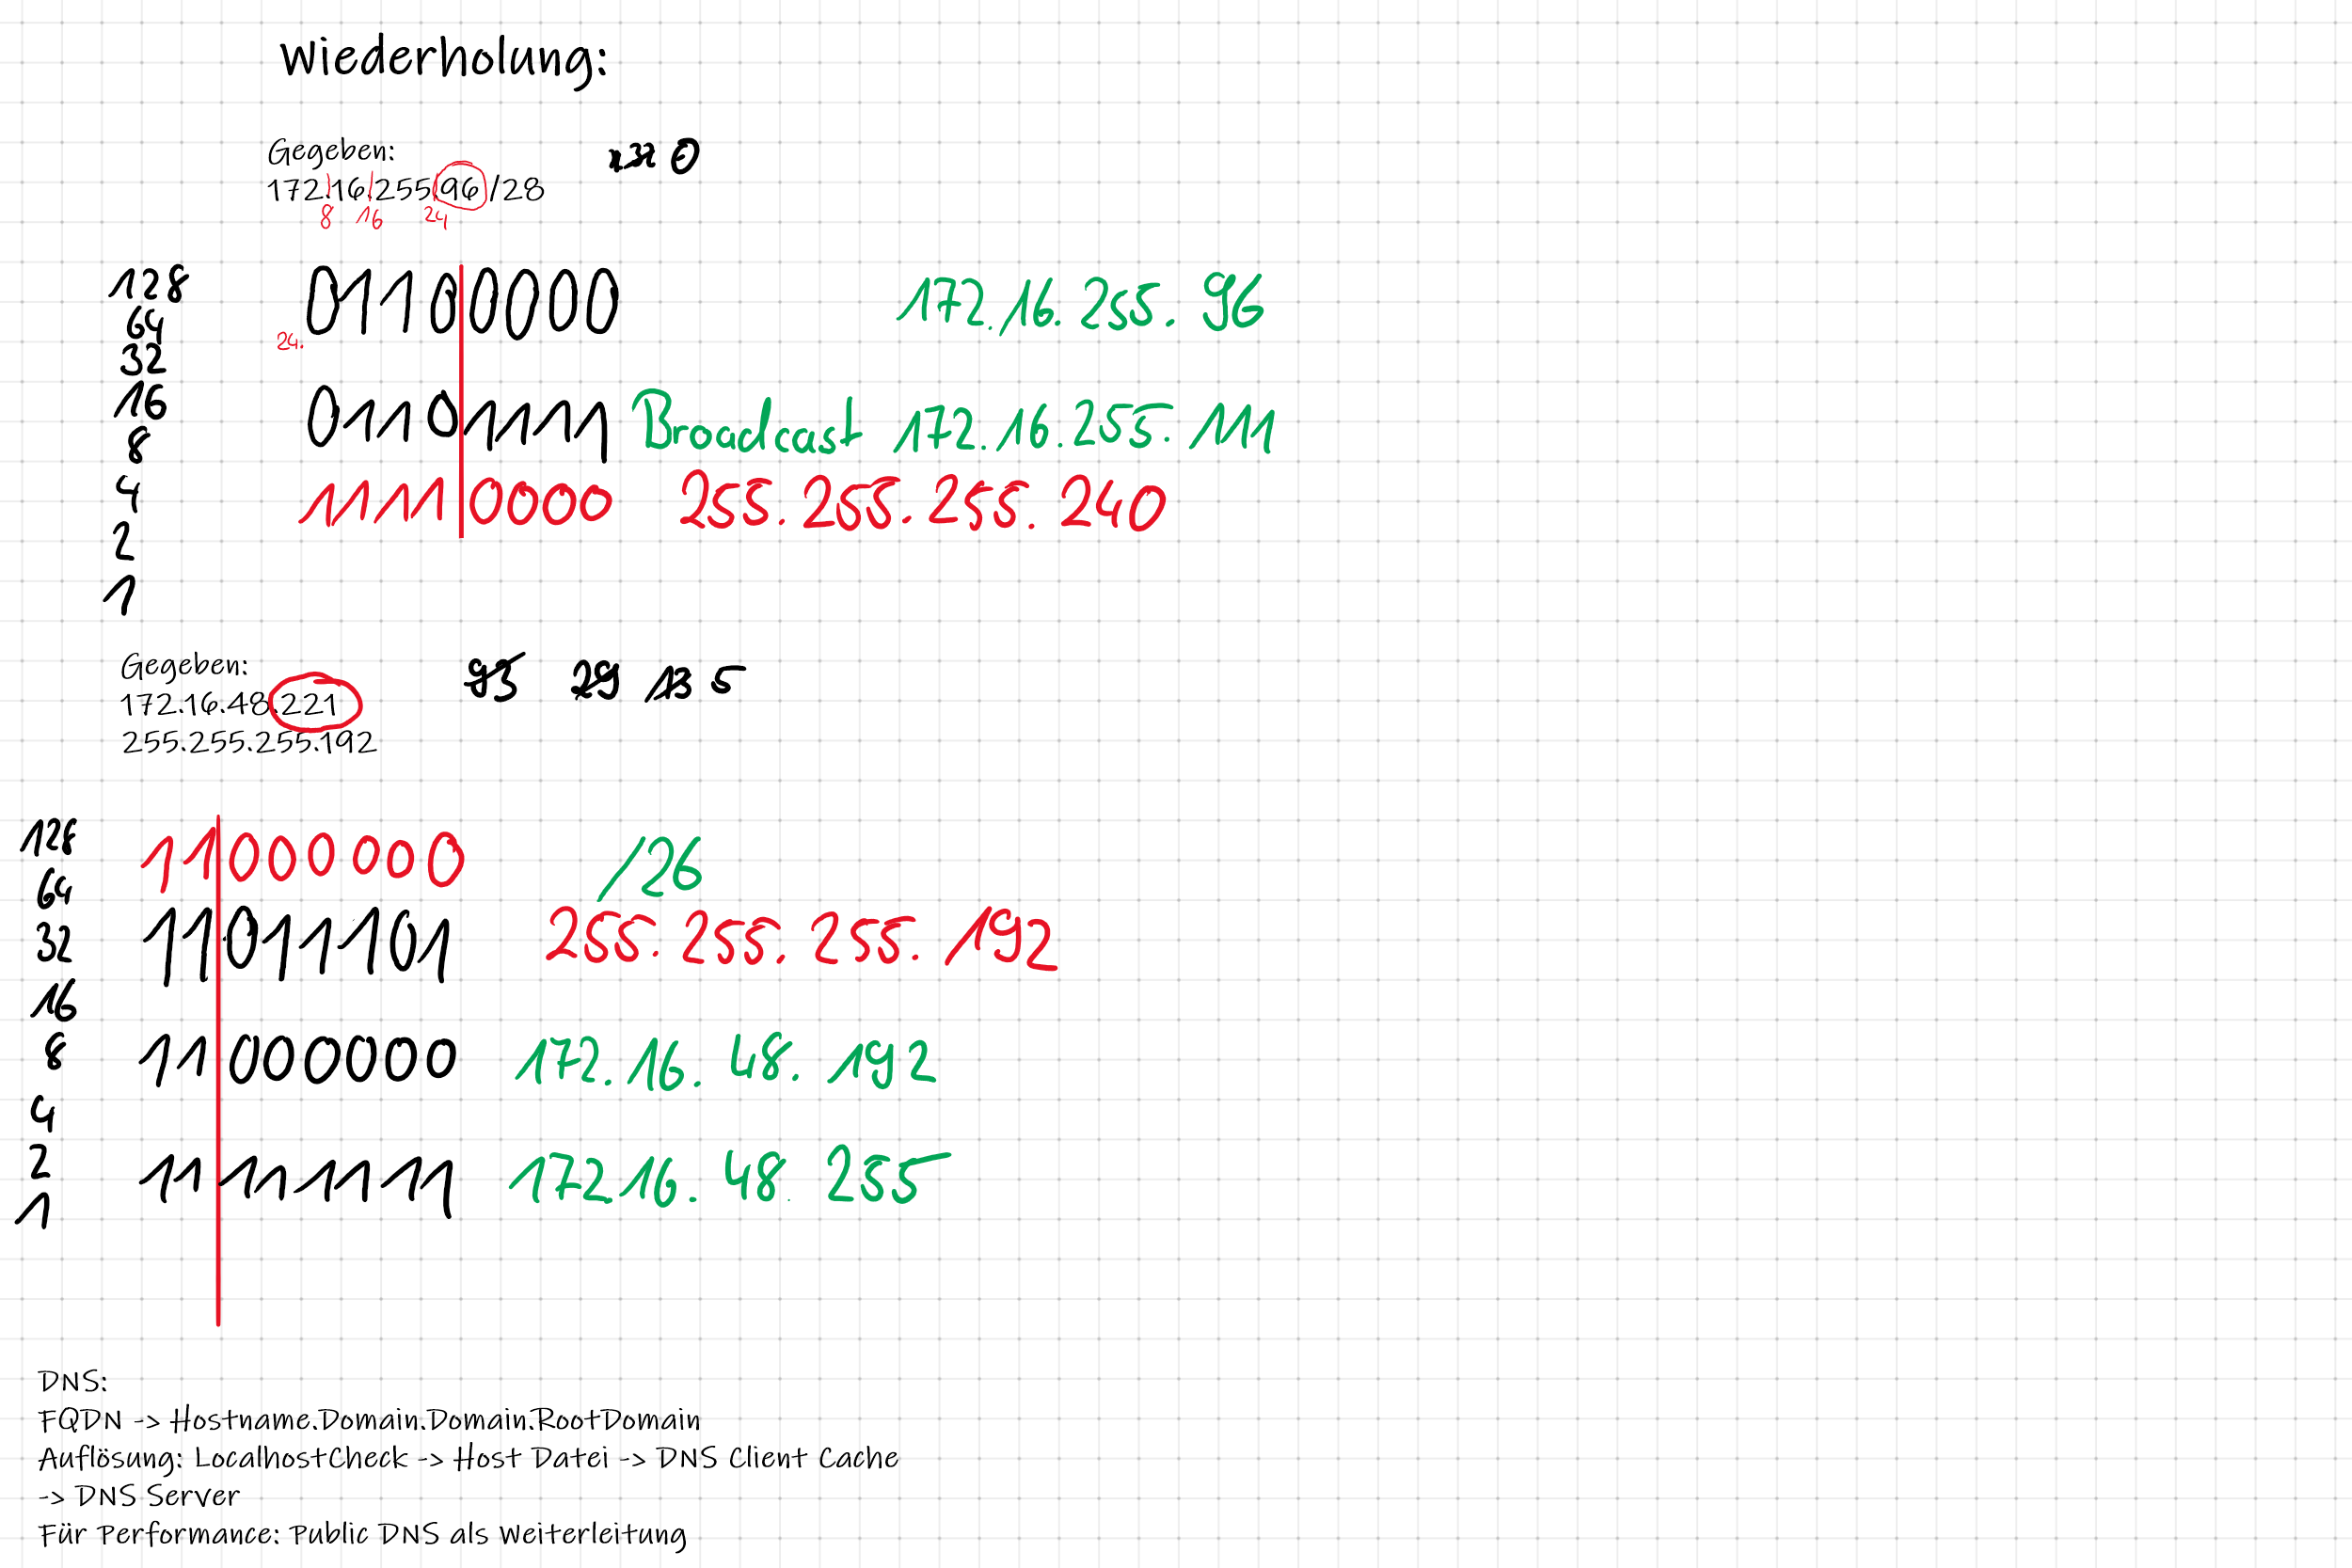 Wiederholung:
Gegeben:
0
172.16.255.96/28
8 16 24
128
64
32
16
8
4
2
1
01100000 172.16.255.96
24.
01101111 Broadcast 172.16.255.111
11110000 255.255.255.240
Gegeben:
93 29 13 5
172.16.48.221
255.255.255.192
128
64
32
16
8
4
2
1
11000000 /26
11011101 255.255.255.192
11000000 172.16.48.192
11111111 172.16.48.255
DNS:
FQDN -> Hostname.Domain.Domain.RootDomain
Auflösung: LocalhostCheck -> Host Datei -> DNS Client Cache
-> DNS Server
Für Performance: Public DNS als Weiterleitung